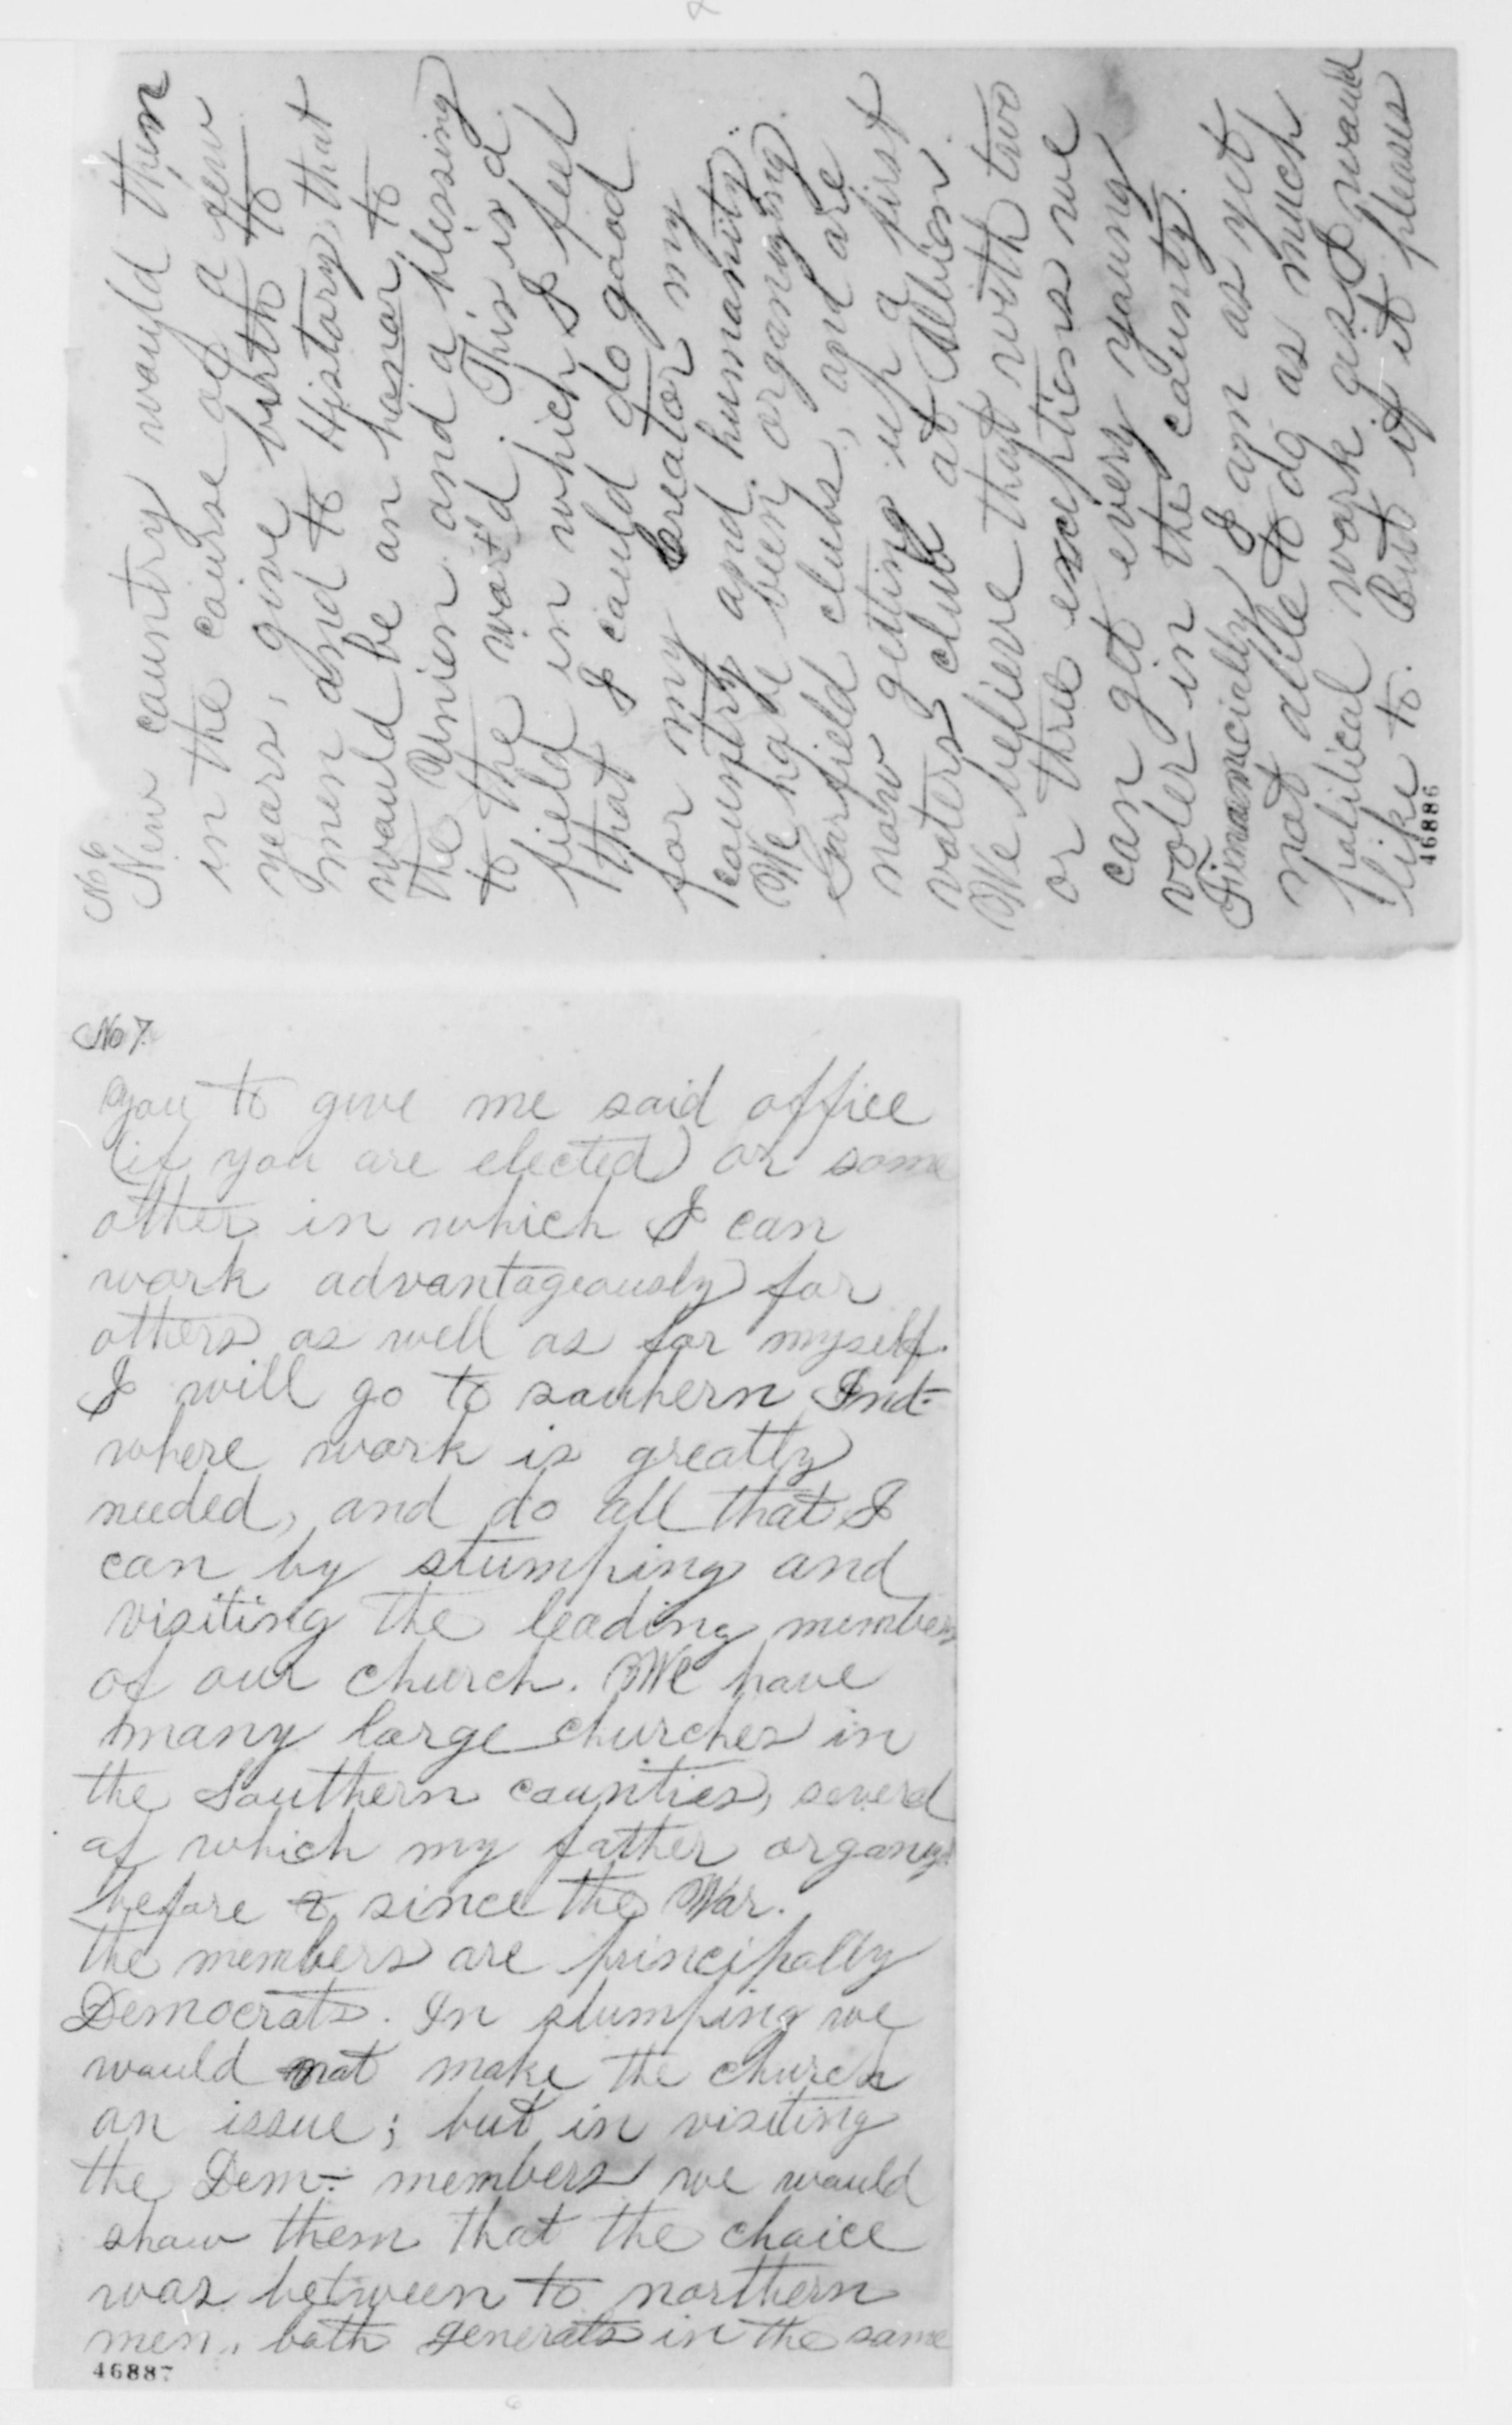 No 6
New country would then
in the course of a few
years, give birth to
men and to History, that
would be an honor, to
the Union and a blessing
to the world. This is a
field in which I feel
that I could do good
for my Creator my
country and humanity.
We have been organizing
Garfield clubs, and are
now getting up a first
voters club at Albion.
We believe that with two
or three exceptions we
can get every young
voter in the county.
Financially I am as yet
not able to do as much
political work as I would
like to. But if it pleases
46886
No 7.
you to give me said office
(if you are elected) or some
other in which I can
work advantageously for
others as well as for myself.
I will go to southern Ind-
where work is greatly
needed, and do all that I
can by stumping and
visiting the leading members
of our church. We have
many large churches in
the Southern counties, several
of which my father organized
before & since the War.
The members are principally
Democrats. In stumping we
would not make the church
an issue; but in visiting
the Dem- members we would
show them that the choice
was between to northern
men, both generals in the same
46887